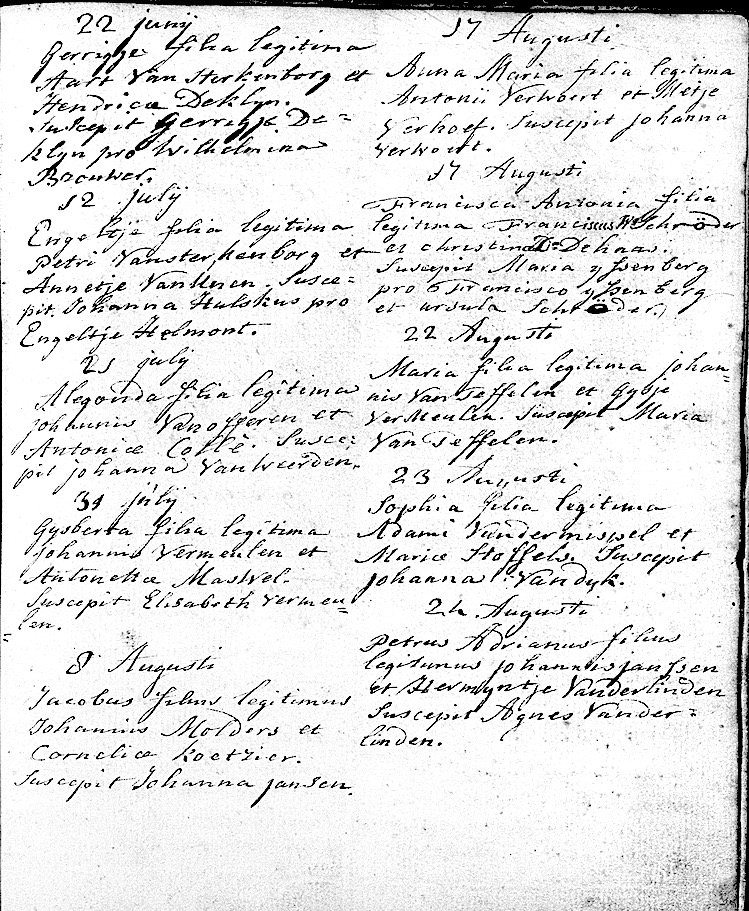 22 junij
Gerrigje filia legitima
Aart Van Sterkenborg et
Hendricæ Deklyn.
Suscepit Gerrigje De=
klyn pro Wilhelmina
Brouwer.
12 julij
Engeltje filia legitima
Petri Vansterkenborg et
Annetje VanUnen. Susce=
pit Johanna Hulskus pro
Engeltje Helmont.
21 julij
Alegonda filia legitima
johannis Vanofferen et
Antoniæ Collé. Susce=
pit johanna VanWeerden.
31 julij
Gysberta filia legitima
johannis Vermeulen et
Antonettæ Maswel.
Suscepit Elisabeth Vermeu=
len.
8 Augusti
Jacobus filius legitimus
Johannis Molders et
Corneliæ Koetzier.
Suscepit Johanna jansen.
17 Augusti
Anna Maria filia legitima
Antonii Verwoert et Metje
Verhoef. Suscepit johanna
Verwoert.
17 Augusti
Francisca Antonia filia
legitima Franciscus Schröder
et christina Dehaas.
Suscepit Maria Yssenberg
pro Francisco Yssenberg
et ursula Schröder.
22 Augusti
Maria filia legitima johan=
nis Van Teffelen et Gysje
VerMeulen. Suscepit Maria
Van Teffelen.
23 Augusti
Sophia filia legitima
Adami Vandermispel et
Mariæ Stoffels. Suscepit
johanna Vandyk.
24 Augusti
Petrus Adrianus filius
legitimus johannis janssen
et Hermyntje Vanderlinden
Suscepit Agnes Vander=
linden.